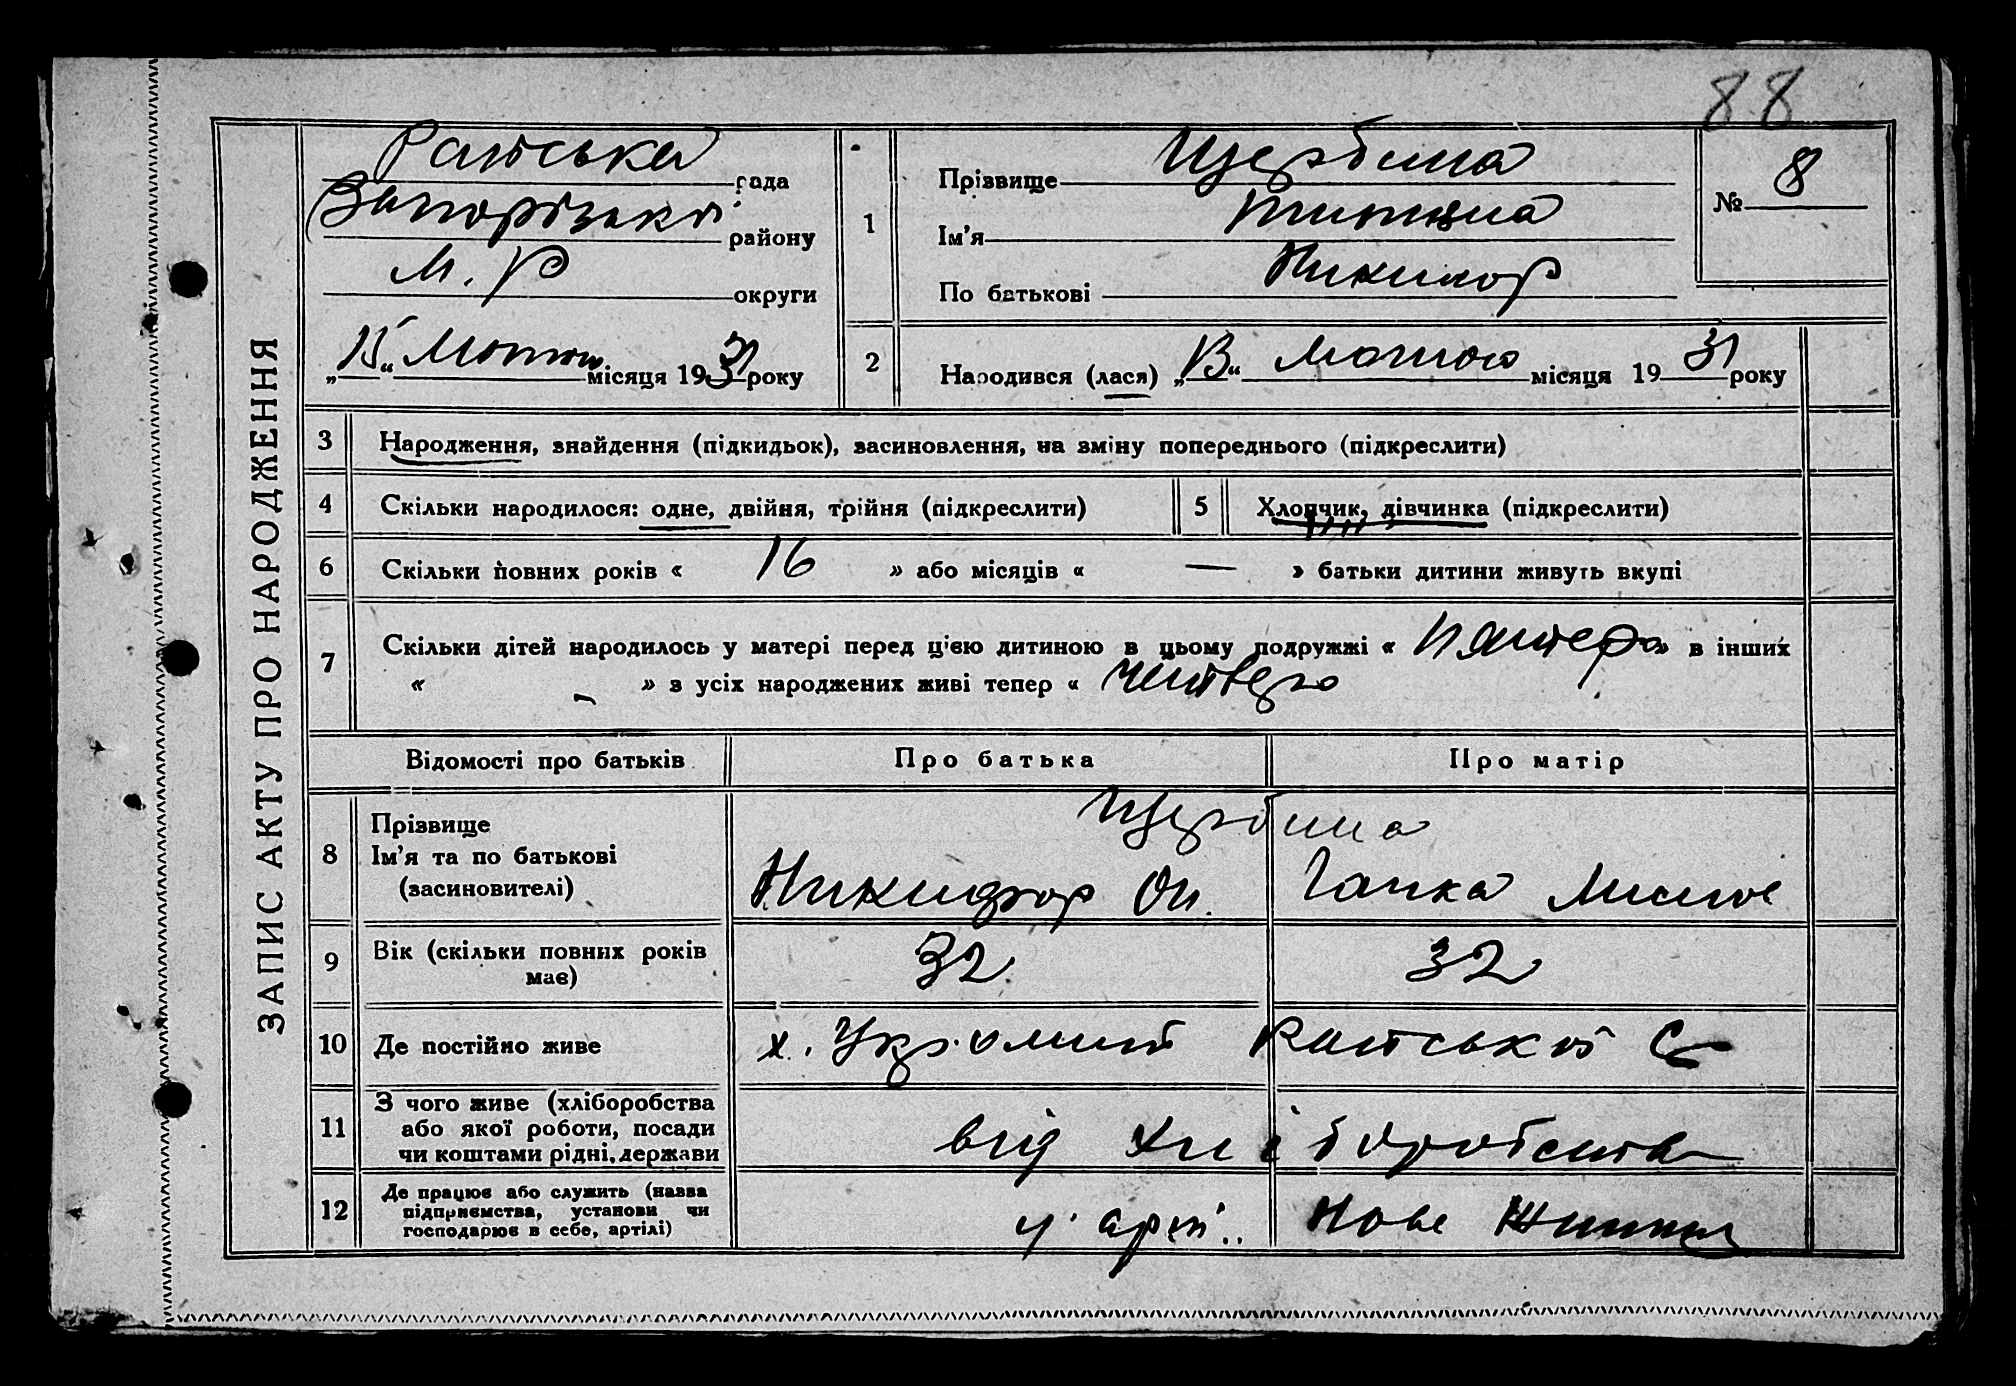 88
ЗАПИС АКТУ ПРО НАРОДЖЕННЯ
рада
Запорізької району
М. Р округи
„15“ Лютого місяця 1931 року
1
Прізвище Щербина
Ім’я Титяна
По батькові Никифор
№ 8
2
Народився (лася) „13“ Лютого місяця 1931 року
3 Народження, знайдення (підкидьок), засиновлення, на зміну попереднього (підкреслити)
4 Скільки народилося: одне, двійня, трійня (підкреслити)
5 Хлопчик, дівчинка (підкреслити)
6 Скільки повних років « 16 » або місяців « — » батьки дитини живуть вкупі
7 Скільки дітей народилось у матері перед ц'єю дитиною в цьому подружжі « пятеро » в інших
« - » з усіх народжених живі тепер « четверо
Відомості про батьків
Про батька
Про матір
8 Прізвище
Ім’я та по батькові
(засиновителі)
Щербина
Никифор Он. Ганка
9 Вік (скільки повних років
має)
32
32
10 Де постійно живе
х. С
11 З чого живе (хліборобства
або якої роботи, посади
чи коштами рідні, держави
від Хліборобства
12 Де працює або служить (назва
підприємства, установи чи
господарює в себе, артілі)
у арт.. Нове Життя